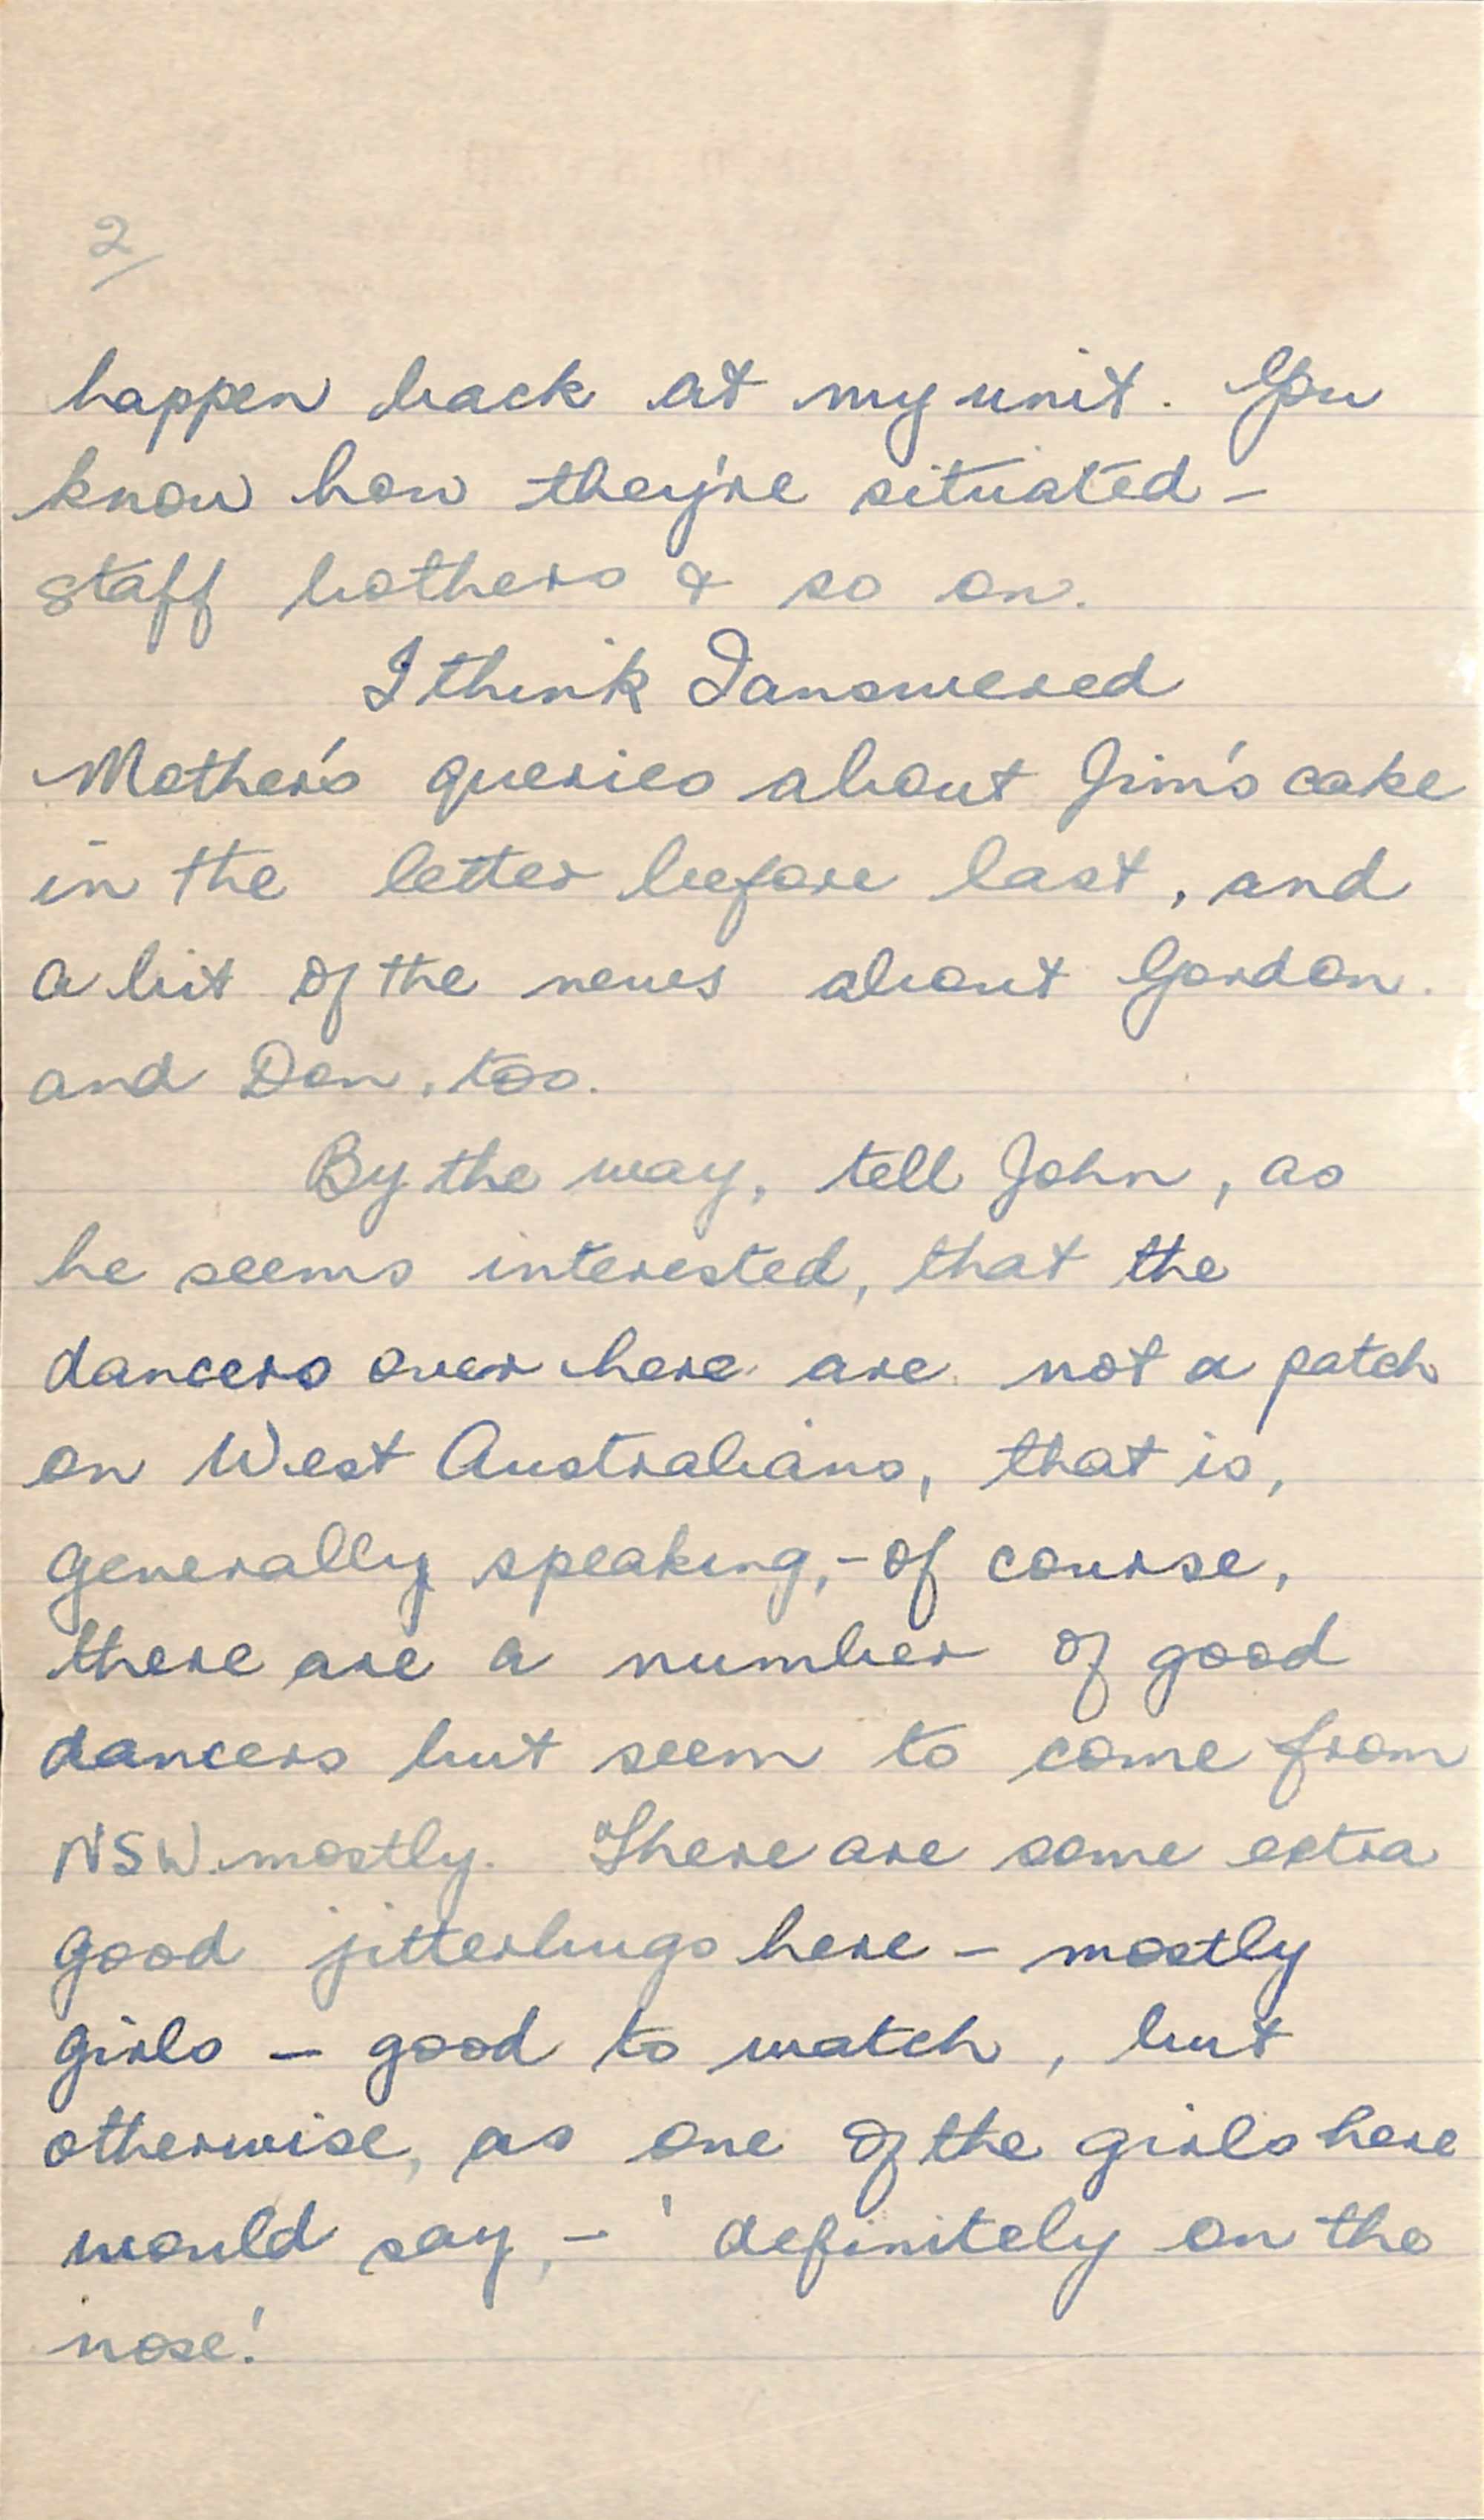 2/
happen back at my unit. You
know how they're situated –
staff bothers & so on.
I think I answered
Mother's queries about Jim's cake
in the letter before last, and
a bit of the news about Gordon
and Don, too.
By the way, tell John, as
he seems interested, that the
dancers over here are not a patch
on West Australians, that is,
generally speaking, – of course,
there are a number of good
dancers but seem to come from
NSW mostly. There are some extra
good jitterbugs here – mostly
girls – good to watch, but
otherwise, as one of the girls here
would say, – 'definitely on the
nose!'